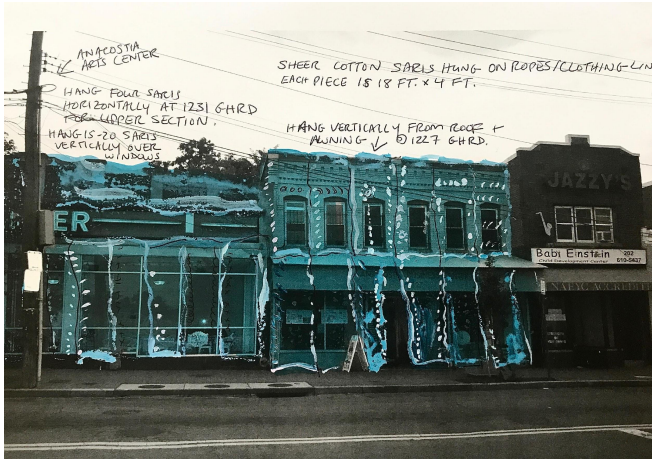 ANACOSTIA
ARTS CENTER
HANG FOUR SARIS
HORIZONTALLY AT 1231 GHRD
FOR UPPER SECTION.
HANG 15-20 SARIS
VERTICALLY OVER
WINDOWS
SHEER COTTON SARIS HUNG ON ROPES/CLOTHING LIN
EACH PIECE IS 18 FT. x 4 FT.
HANG VERTICALLY FROM ROOF +
AWNING @ 1227 GHRD.
ER
JAZZY'S
Einstein 202
Child Development Center 610-5437